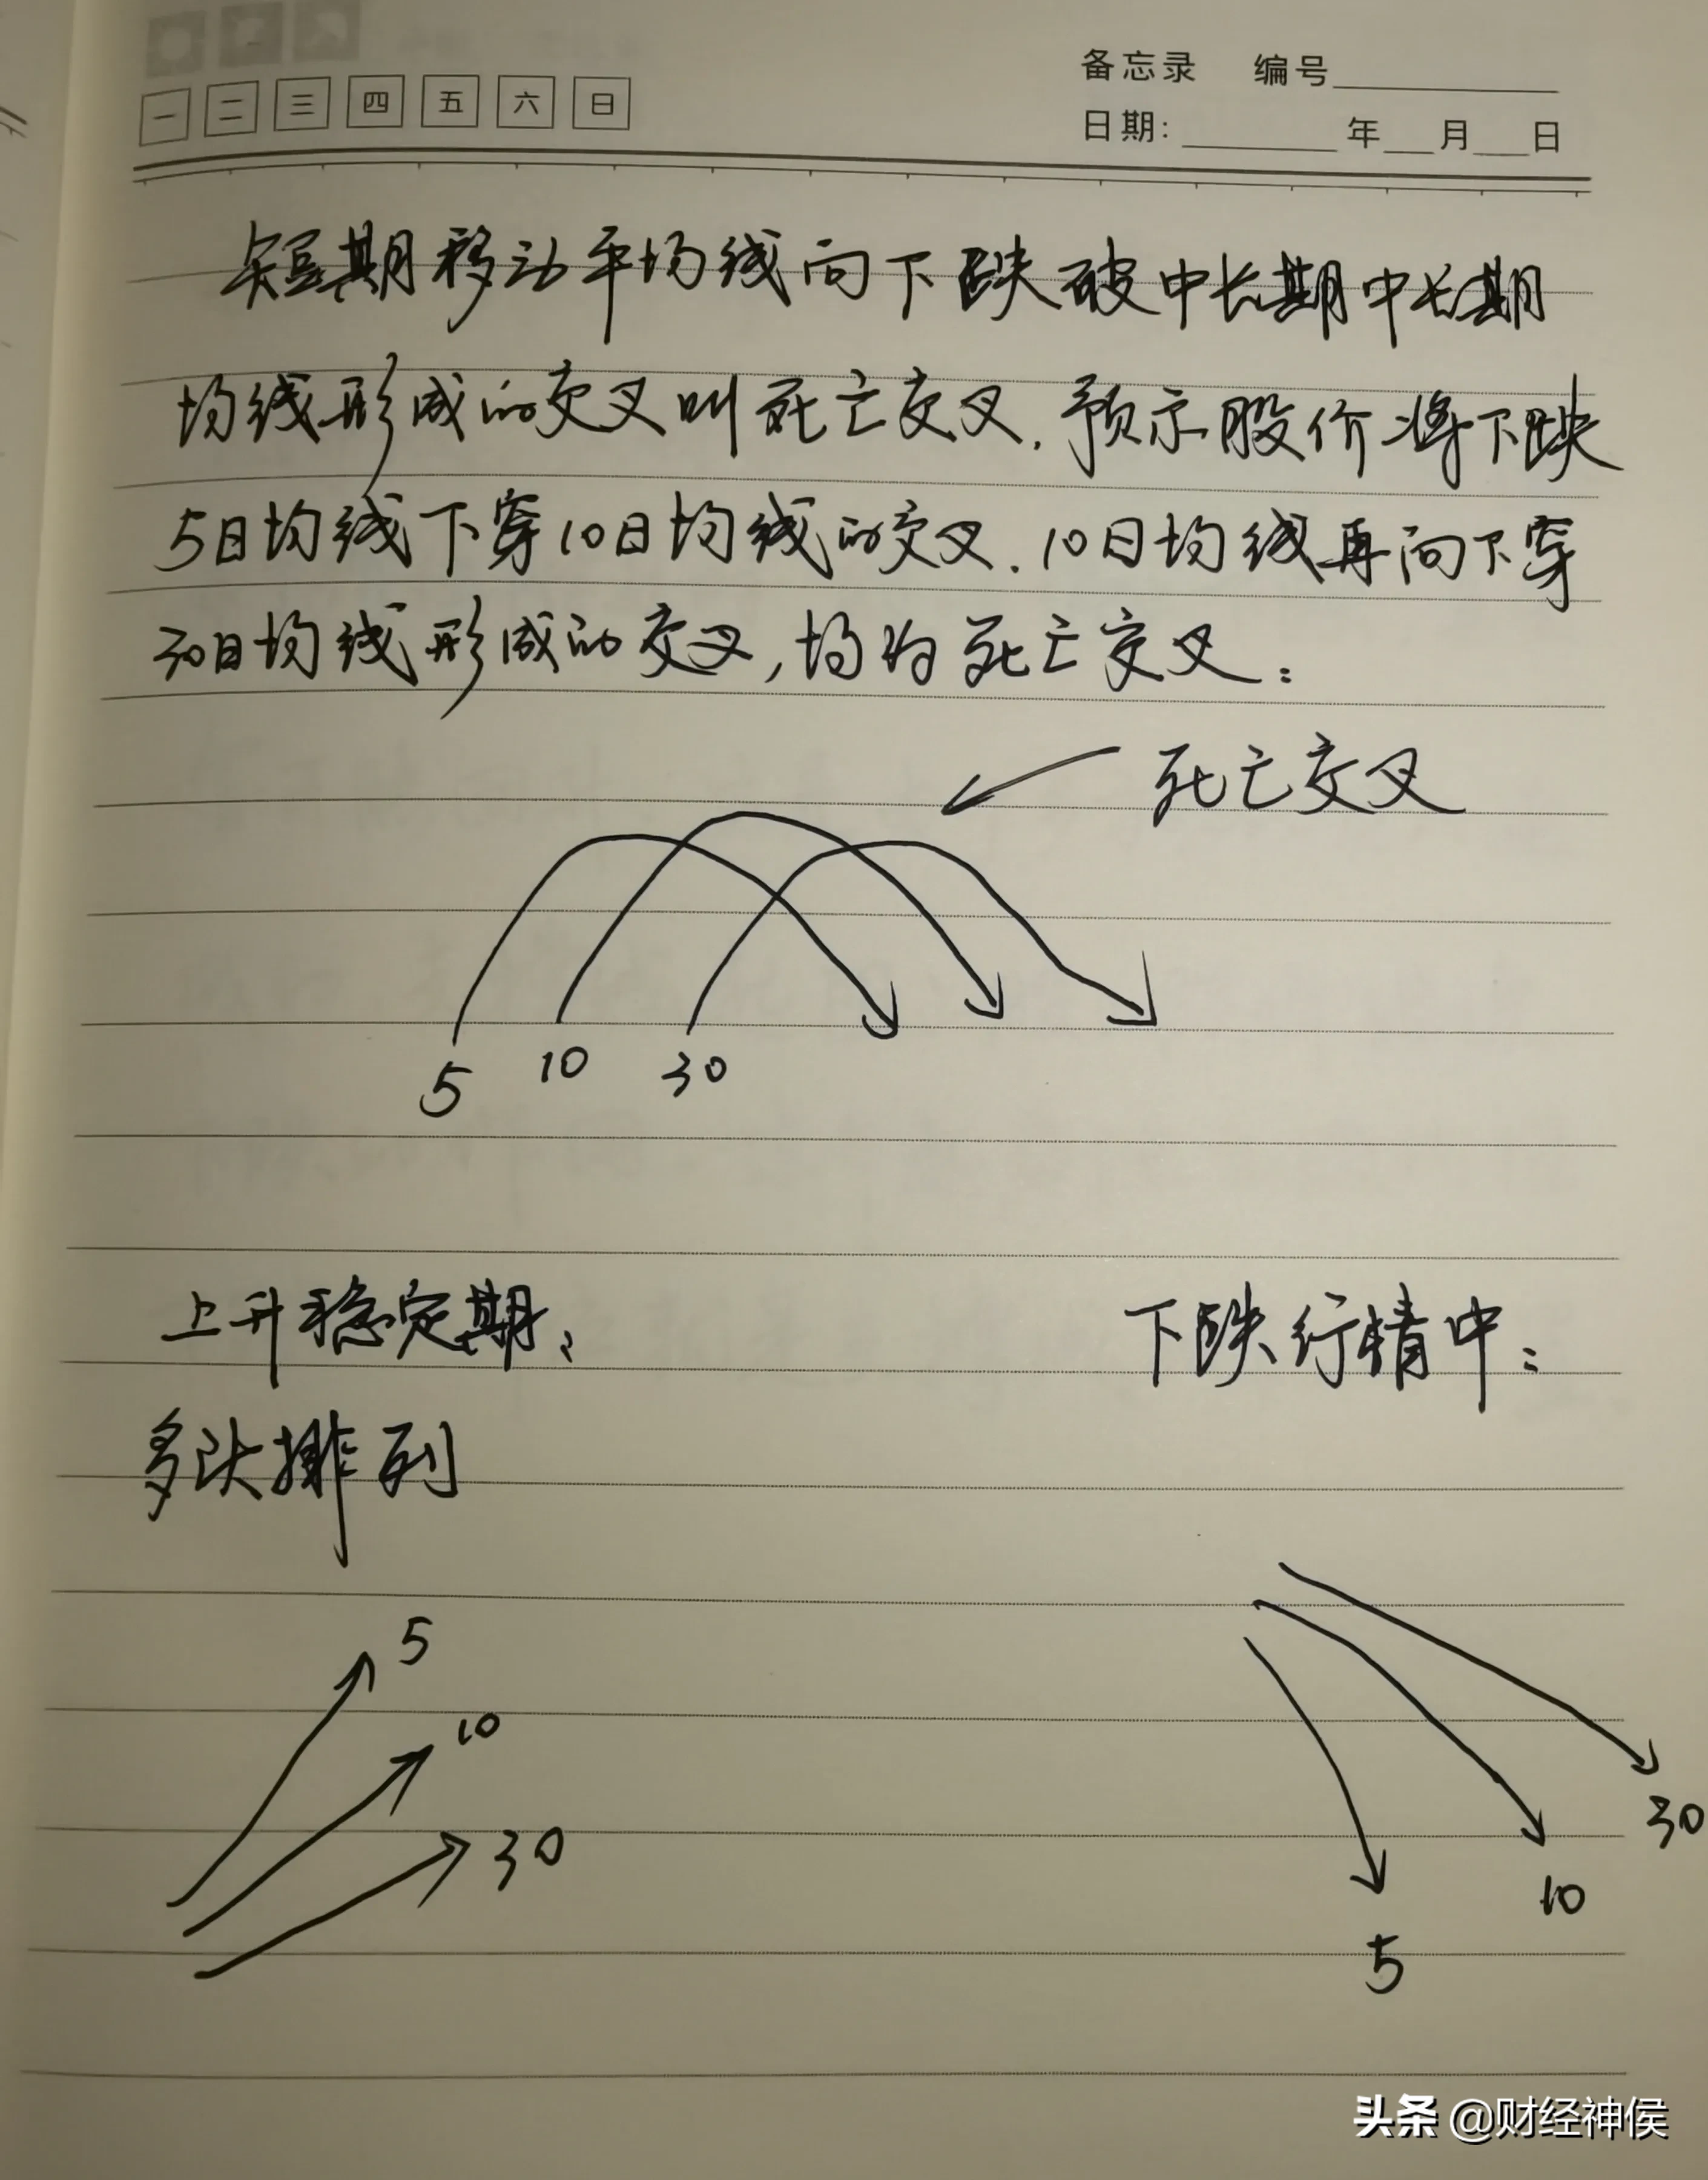 备忘录 编号
一 二 三 四 五 六 日
日期: 年 月 日
短期移动平均线向下跌破中长期中长期
均线形成的交叉叫死亡交叉.预示股价将下跌
5日均线下穿10日均线的交叉.10日均线再向下穿
30日均线形成的交叉,均为死亡交叉:
死亡交叉
5 10 30
上升稳定期、 下跌行情中:
多头排列
5
10
30
30
10
5
头条 @财经神侯